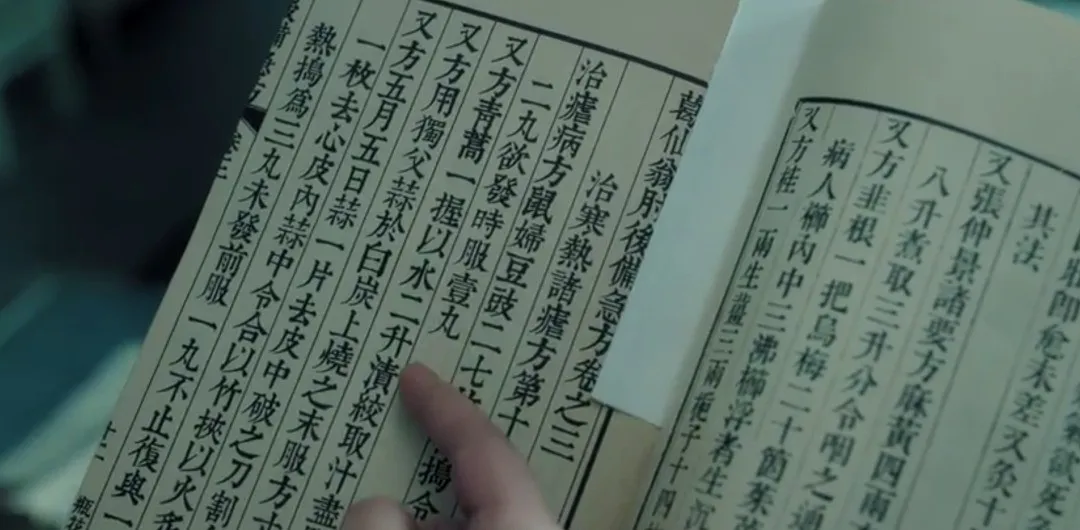 師愈未差又灸十
其法
又張仲景諸要方麻黃四兩
八升煮取三升分令咽之通
又方韭根一把烏梅二十箇茱
病人櫛內中三沸櫛浮者生沉
又方桂一兩生薑三兩梔子十四
葛仙翁肘後備急方卷之三
治寒熱諸瘧方第十
治瘧病方鼠婦豆豉二七 搗令
二丸欲發時服壹丸
又方青蒿一握以水二升漬絞取汁盡
又方用獨父蒜於白炭上燒之末服方
又方五月五日蒜一片去皮中破之刀割
一枚去心皮內蒜中令合以竹挾以火炙
熱搗爲三丸未發前服一丸不止復與一
備急方 卷三 十二 瓶花